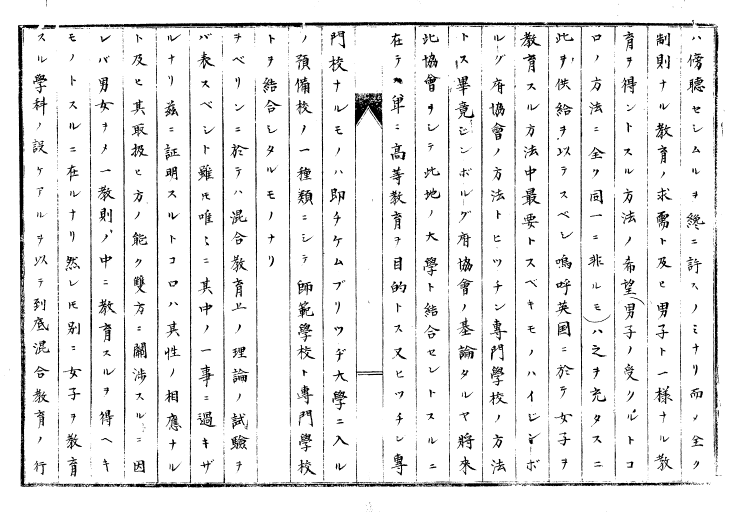 ハ傍聽セシムルヲ纔ニ許スノミナリ而ノ全ク
制則ナル教育ノ求需ト及ヒ男子ト一様ナル教
育ヲ得ントスル方法ノ希望(男子ノ受クルトコ
ロノ方法ニ全ク同一ニ非ルモ)ハ之ヲ充タスニ
此ヲ供給ヲ以テスベシ嗚呼英国ニ於テ女子ヲ
教育スル方法中最要トスベキモノハイヂンボ
ルグ府協會ノ方法トヒッチン專門學校ノ方法
トス畢竟ヂンボルグ府協會ノ基論タルヤ將來
此協會ヲシテ此地ノ大學ト結合セントスルニ
在テ単ニ高等教育ヲ目的トス又ヒッチン專
門校ナルモノハ即チケムブリッヂ大學ニ入ル
ノ預備校ノ一種類ニシテ師範學校ト專門學校
トヲ結合シタルモノナリ
ヲベリンニ於テハ混合教育上ノ理論ノ試驗ヲ
バ表スベシト雖モ唯ニ其中ノ一事ニ過キザ
ルナリ茲ニ証明スルトコロハ其性ノ相應ナル
ト及ヒ其取扱ヒ方ノ能ク雙方ニ關渉スルニ因
レバ男女ヲメ一教則ノ中ニ教育スルヲ得ヘキ
モノトスルニ在ルナリ然レモ別ニ女子ヲ教育
スル學科ノ設ケアルヲ以テ到底混合教育ノ行